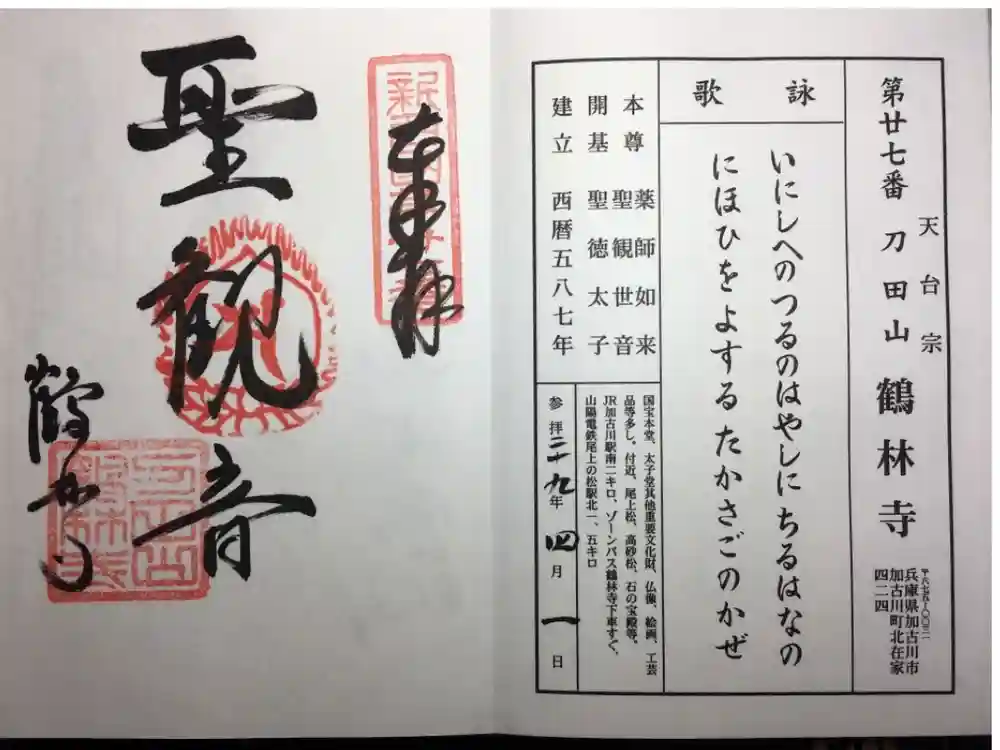 天台宗
第廿七番 刀田山 鶴林寺
〒六七五-〇〇三一
兵庫県加古川市
加古川町北在家
四二四
詠歌
いにしへのつるのはやしにちるはなの
にほひをよするたかさごのかぜ
本尊 薬師如来
聖観世音
開基 聖徳太子
建立 西暦五八七年
国宝本堂、太子堂其他重要文化財、仏像、絵画、工芸
品等多し。付近、尾上松、高砂松、石の宝殿等。
JR加古川駅南二キロ、ゾーンバス鶴林寺下車すぐ、
山陽電鉄尾上の松駅北一、五キロ
参拝二十九年四月一日
奉拝
聖觀音
鶴林寺